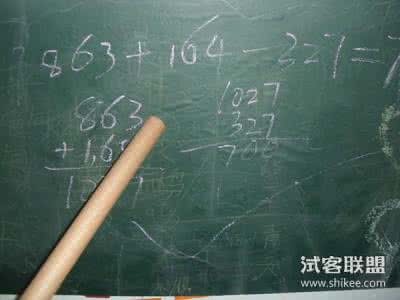 863+164-327=7
863
+16
10 7
1027
327
700
试客联盟
www.shikee.com